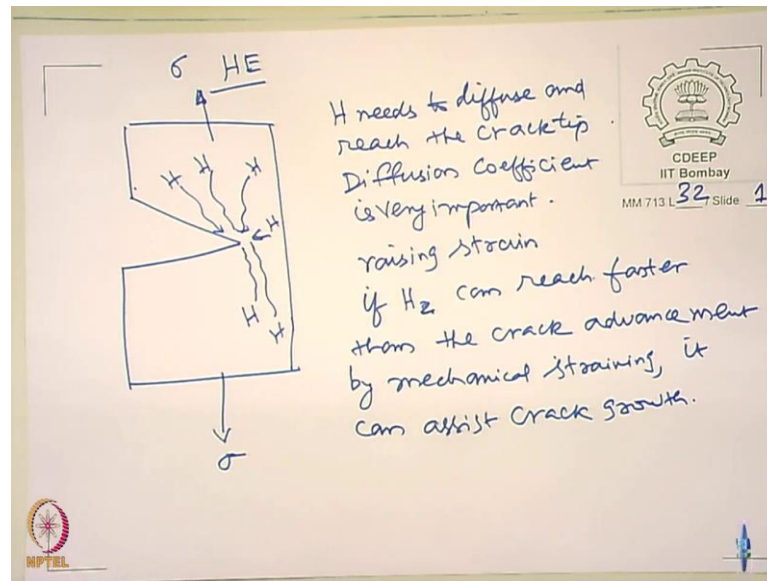 σ HE
H needs to diffuse and
reach the crack tip
Diffusion Coefficient
is very important.
raising strain
if H2 can reach faster
than the crack advancement
by mechanical straining, it
can assist crack growth.
H H H
H
H H
σ
CDEEP
IIT Bombay
MM 713 L 32 / Slide 1
NPTEL